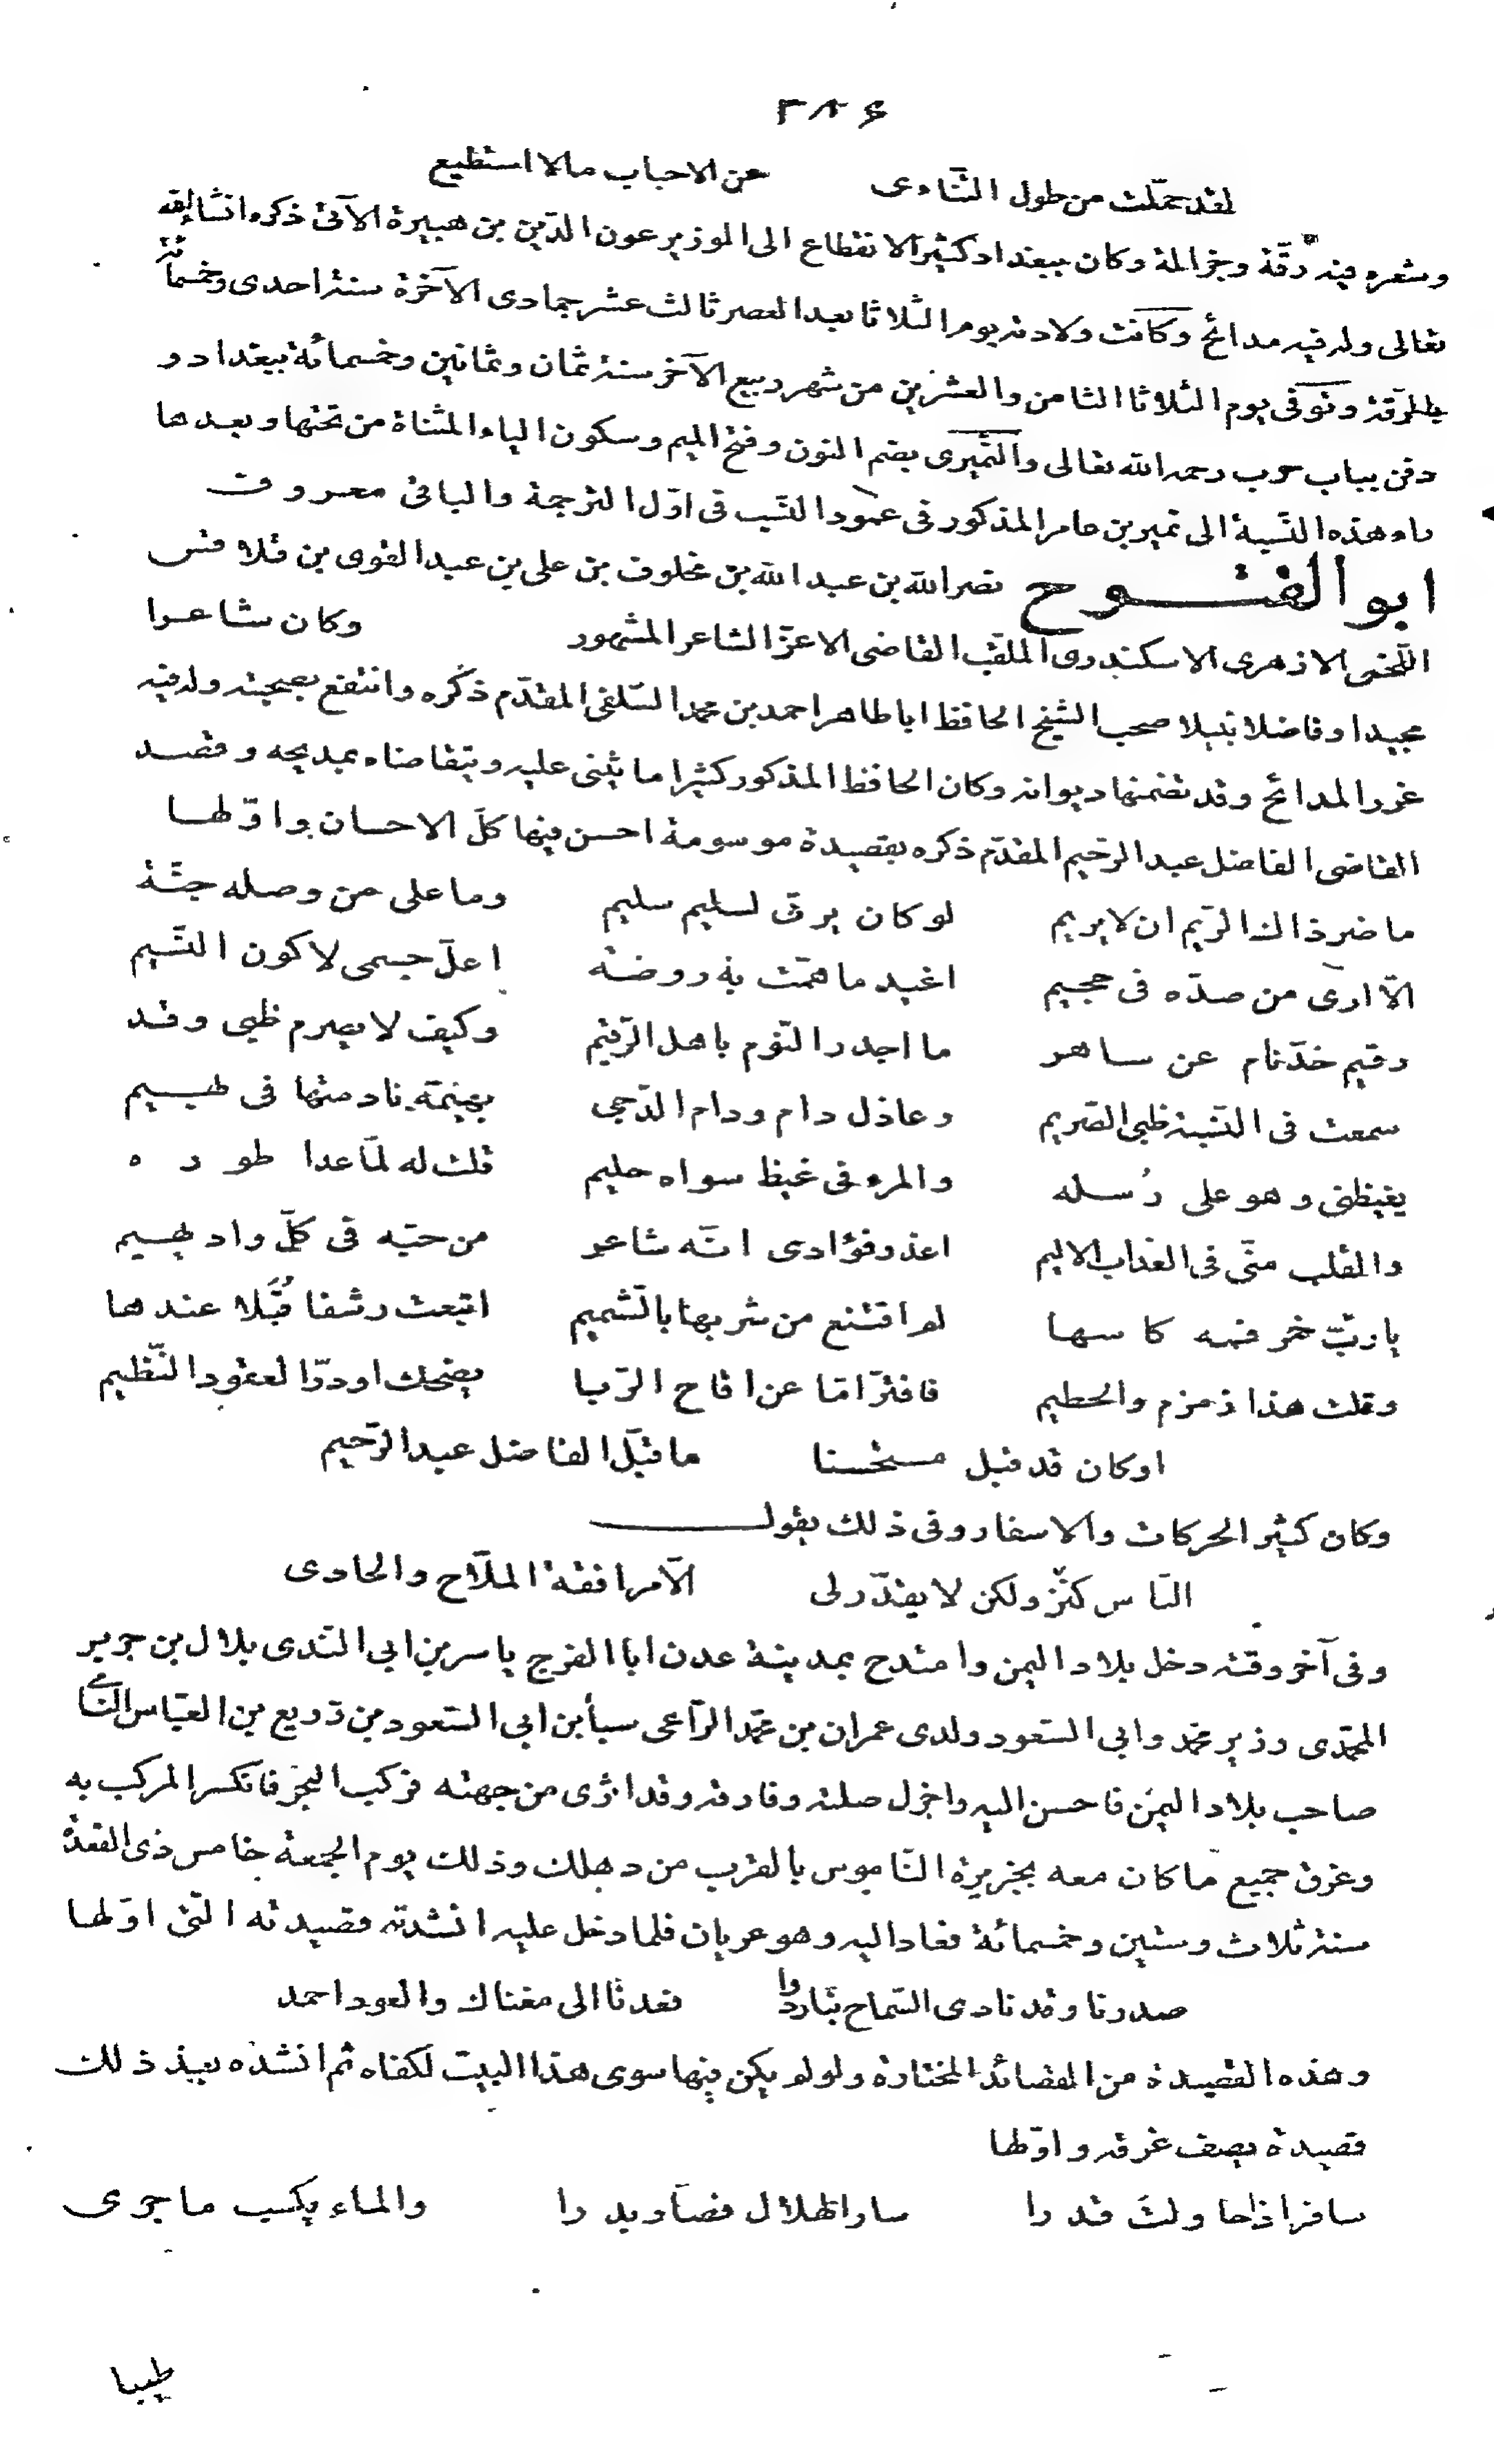 ٣٨٤
لقد حمّلت من طول التنآءى عن الاحباب مالا استطيع
وشعره فيه رقّة وجزالة وكان ببغداد كثير الانقطاع الى الوزير عون الدّين بن هبيرة الآتى ذكره انشاء الله
تعالى وله فيه مدائح وكانت ولادته يوم الثلاثا بعد العصر ثالث عشر جمادى الآخرة سنة احدى وخمسمائة
بالرقّة وتوفى يوم الثلاثا الثامن والعشرين من شهر ربيع الآخر سنة ثمان وثمانين وخمسمائة ببغداد و
دفن بباب حرب رحمه الله تعالى والنّميرى بضم النون وفتح الميم وسكون الياء المثناة من تحتها وبعدها
راء وهذه النّسبة الى نمير بن عامر المذكور فى عمود النّسب فى اوّل الترجمة والباقى معروف
ابو الفتوح نصر الله بن عبد الله بن مخلوف بن على بن عبد القوى بن قلاقس
اللّخمى الازهرى الاسكندرى الملقّب القاضى الاعزّ الشاعر المشهور وكان شاعرا
مجيدا وفاضلا نبيلا صحب الشيخ الحافظ ابا طاهر احمد بن محمد السّلفى المقدّم ذكره وانتفع بصحبته وله فيه
غرر المدائح وقد تضمنها ديوانه وكان الحافظ المذكور كثيرا ما يثنى عليه ويتقاضاه بمديحه وقصد
القاضى الفاضل عبد الرّحيم المقدّم ذكره بقصيدة موسومة احسن فيها كلّ الاحسان واوّلها
ما ضر ذاك الرّيم ان لا يريم لو كان يرثى لسليم سليم وما على من وصله جنّة
الّا ارى من صدّه فى جحيم اغيد ما همّت به روضة اعلّ جسمى لاكون النّسيم
رقيم خدّ نام عن ساهر ما اجدر النّوم باهل الرّقيم وكيف لا يصرم ظبى وقد
سمعت فى النّسبة ظبى الصّريم وعاذل دام ودام الدّجى بهيمة نادمتها فى بهيم
يغيظنى وهو على رُسله والمرء فى غيظ سواه حليم قلت له لمّا عدا طوره
والقلب منّى فى العذاب الاليم اعذر فؤادى انّه شاعر من حبّه فى كلّ واد يهيم
يا ربّ خمر فمه كاسها لم اقتنع من شربها بالشّميم اتبعت رشفا قُبَلا عندها
وقلت هذا زمزم والحطيم فافترّ امّا عن اقاح الرّبا يضحك او درّ العقود النّظيم
او كان قد قبل مستحسنا ما قبّل الفاضل عبد الرّحيم
وكان كثير الحركات والاسفار وفى ذلك يقول
النّاس كثرٌ ولكن لا يقدّر لى الّا مرافقة الملّاح والحادى
وفى آخر وقته دخل بلاد اليمن وامتدح بمدينة عدن ابا الفرج ياسر بن ابى النّدى بلال بن جرير
المحمّدى وزير محمّد وابى السّعود ولدى عمران بن محمّد الدّاعى سبأ بن ابى السّعود بن زريع بن العبّاس اليامى
صاحب بلاد اليمن فاحسن اليه واجزل صلته وفارقه وقد اثرى من جهته فركب البحر فانكسر المركب به
وغرق جميع ما كان معه بجزيرة النّاموس بالقرب من دهلك وذلك يوم الجمعة خامس ذى القعدة
سنة ثلاث وستين وخمسمائة فعاد اليه وهو عريان فلما دخل عليه انشدته قصيدته التى اوّلها
صدرنا وقد نادى السّماح بنا ردوا فعدنا الى مغناك والعود احمد
وهذه القصيدة من القصائد المختارة ولو لم يكن فيها سوى هذا البيت لكفاه ثم انشده بعيد ذلك
قصيدة يصف غرقه واوّلها
سافر اذا حاولت قدرا سار الهلال فصار بدرا والماء يكسب ما جرى
طيبا